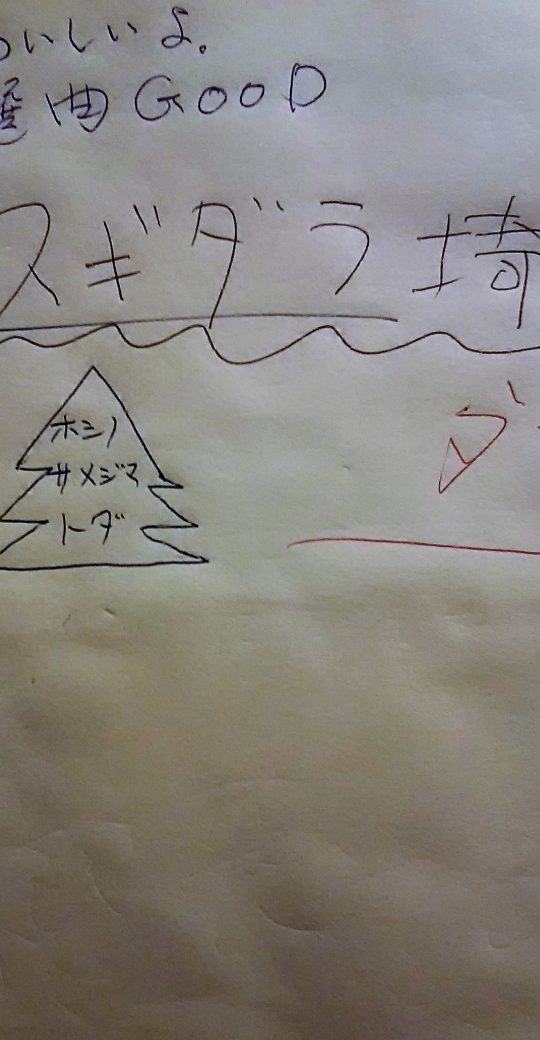 おいしいよ。
選曲GOOD
スギダラ埼
ホシノ
サメジマ
トダ